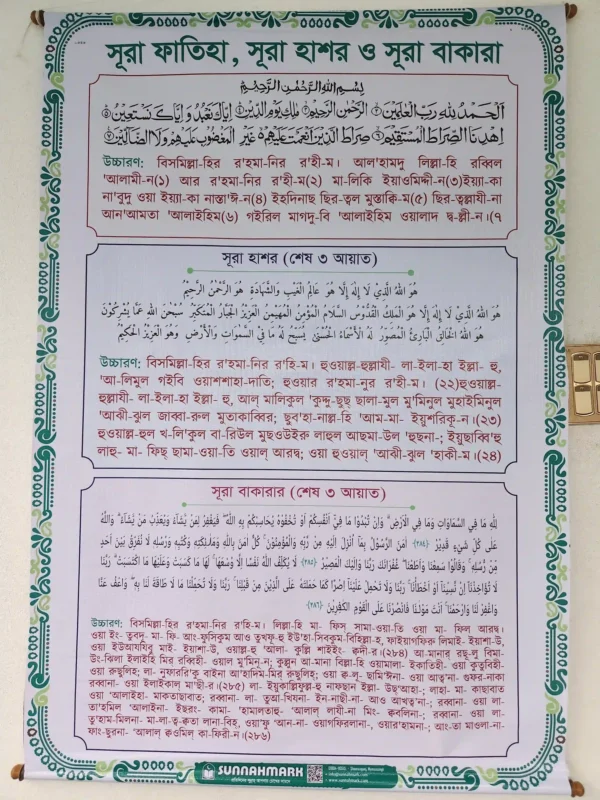 সূরা ফাতিহা, সূরা হাশর ও সূরা বাকারা
بِسْمِ اللهِ الرَّحْمٰنِ الرَّحِيْمِ
اَلْحَمْدُ لِلّٰهِ رَبِّ الْعٰلَمِيْنَ ۝ الرَّحْمٰنِ الرَّحِيْمِ ۝ مٰلِكِ يَوْمِ الدِّيْنِ ۝ اِيَّاكَ نَعْبُدُ وَاِيَّاكَ نَسْتَعِيْنُ ۝
اِهْدِنَا الصِّرَاطَ الْمُسْتَقِيْمَ ۝ صِرَاطَ الَّذِيْنَ اَنْعَمْتَ عَلَيْهِمْ ۝ غَيْرِ الْمَغْضُوْبِ عَلَيْهِمْ وَلَا الضَّآلِّيْنَ ۝
উচ্চারণ: বিসমিল্লা-হির র'হমা-নির র'হী-ম। আল'হামদু লিল্লা-হি রব্বিল
'আলামী-ন(১) আর র'হমা-নির র'হী-ম(২) মা-লিকি ইয়াওমিদ্দী-ন(৩)ইয়্যা-কা
না'বুদু ওয়া ইয়্যা-কা নাস্তা'ঈ-ন(৪) ইহদিনাছ ছির-ত্বল মুস্তাকি-ম(৫) ছির-ত্বল্লাযী-না
আন'আমতা 'আলাইহিম(৬) গইরিল মাগদু-বি 'আলাইহিম ওয়ালাদ দ্ব-ল্লী-ন।(৭
সূরা হাশর (শেষ ৩ আয়াত)
هُوَ اللهُ الَّذِي لَا إِلٰهَ إِلَّا هُوَ عَالِمُ الْغَيْبِ وَالشَّهَادَةِ هُوَ الرَّحْمٰنُ الرَّحِيْمُ
هُوَ اللهُ الَّذِي لَا إِلٰهَ إِلَّا هُوَ الْمَلِكُ الْقُدُّوْسُ السَّلَامُ الْمُؤْمِنُ الْمُهَيْمِنُ الْعَزِيْزُ الْجَبَّارُ الْمُتَكَبِّرُ سُبْحٰنَ اللهِ عَمَّا يُشْرِكُوْنَ
هُوَ اللهُ الْخَالِقُ الْبَارِئُ الْمُصَوِّرُ لَهُ الْأَسْمَاءُ الْحُسْنٰى يُسَبِّحُ لَهُ مَا فِي السَّمٰوَاتِ وَالْأَرْضِ وَهُوَ الْعَزِيْزُ الْحَكِيْمُ
উচ্চারণ: বিসমিল্লা-হির র'হমা-নির র'হি-ম। হুওয়াল্ল-হুল্লাযী- লা-ইলা-হা ইল্লা- হু,
'আ-লিমুল গইবি ওয়াশশাহা-দাতি; হুওয়ার র'হমা-নুর র'হী-ম। (২২)হুওয়াল্ল-
হুল্লাযী- লা-ইলা-হা ইল্লা- হু, আল্ মালিকুল 'কুদ্দু-ছুছ্ ছালা-মুল মু'মিনুল মুহাইমিনুল
'আঝী-ঝুল জাব্বা-রুল মুতাকাব্বির; ছুব'হা-নাল্ল-হি 'আম-মা- ইয়ুশরিকূ-ন।(২৩)
হুওয়াল্ল-হুল খ-লি'কুল বা-রিউল মুছওউইরু লাহুল আছমা-উল 'হুছনা-; ইয়ুছাব্বি'হু
লাহু- মা- ফিছ্ ছামা-ওয়া-তি ওয়াল্ আরদ্ব; ওয়া হুওয়াল্ 'আঝী-ঝুল 'হাকী-ম।(২৪)
সূরা বাকারার (শেষ ৩ আয়াত)
لِلّٰهِ مَا فِي السَّمَاوَاتِ وَمَا فِي الْأَرْضِ وَإِنْ تُبْدُوْا مَا فِيْ أَنْفُسِكُمْ أَوْ تُخْفُوْهُ يُحَاسِبْكُمْ بِهِ اللهُ فَيَغْفِرُ لِمَنْ يَّشَاءُ وَيُعَذِّبُ مَنْ يَّشَاءُ وَاللهُ
عَلٰى كُلِّ شَيْءٍ قَدِيْرٌ ﴿٢٨٤﴾ اٰمَنَ الرَّسُوْلُ بِمَا أُنْزِلَ إِلَيْهِ مِنْ رَّبِّهِ وَالْمُؤْمِنُوْنَ كُلٌّ اٰمَنَ بِاللهِ وَمَلٰئِكَتِهِ وَكُتُبِهِ وَرُسُلِهِ لَا نُفَرِّقُ بَيْنَ أَحَدٍ
مِّنْ رُّسُلِهِ وَقَالُوْا سَمِعْنَا وَأَطَعْنَا غُفْرَانَكَ رَبَّنَا وَإِلَيْكَ الْمَصِيْرُ ﴿٢٨٥﴾ لَا يُكَلِّفُ اللهُ نَفْسًا إِلَّا وُسْعَهَا لَهَا مَا كَسَبَتْ وَعَلَيْهَا مَا اكْتَسَبَتْ رَبَّنَا
لَا تُؤَاخِذْنَا إِنْ نَّسِيْنَا أَوْ أَخْطَأْنَا رَبَّنَا وَلَا تَحْمِلْ عَلَيْنَا إِصْرًا كَمَا حَمَلْتَهُ عَلَى الَّذِيْنَ مِنْ قَبْلِنَا رَبَّنَا وَلَا تُحَمِّلْنَا مَا لَا طَاقَةَ لَنَا بِهِ وَاعْفُ عَنَّا
وَاغْفِرْ لَنَا وَارْحَمْنَا أَنْتَ مَوْلٰنَا فَانْصُرْنَا عَلَى الْقَوْمِ الْكٰفِرِيْنَ ﴿٢٨٦﴾
উচ্চারণ: বিসমিল্লা-হির র'হমা-নির র'হি-ম। লিল্লা-হি মা- ফিস্ সামা-ওয়া-তি ওয়া মা- ফিল আরদ্ব।
ওয়া ইং- তুবদূ- মা- ফি- আং-ফুসিকুম আও তুখফূ-হু ইউ'হা-সিবকুম-বিহিল্লা-হ, ফাইয়াগফিরু লিমাই- ইয়াশা-উ,
ওয়া ইউআযযিবু মাই- ইয়াশা-উ, ওয়াল্ল-হু 'আলা- কুল্লি শাইইং- ক্বদী-র।(২৮৪) আ-মানার্ রছূ-লু বিমা-
উং-ঝিলা ইলাইহি মির রব্বিহী- ওয়াল মু'মিনূ-ন; কুল্লুন আ-মানা বিল্লা-হি ওয়ামালা- ইকাতিহী- ওয়া কুতুবিহী-
ওয়া রুছুলিহ; লা- নুফাররিকু বাইনা আ'হাদিম-মির রুছুলিহ; ওয়া ক্ব-লূ- ছামি'ঈনা- ওয়া আত্ব'না- গুফর-নাকা
রব্বানা- ওয়া ইলাইকাল মা'ছী-র।(২৮৫) লা- ইয়ুকাল্লিফুল্ল-হু নাফছান ইল্লা- উছ'আহা-; লাহা- মা- কাছাবাত
ওয়া 'আলাইহা- মাকতাছাবাত; রব্বানা- লা- তুআ-খিযনা- ইন-নাছী-না- আও আখত্ব'না-; রব্বানা- ওয়া লা-
তা'হমিল 'আলাইনা- ইছরং- কামা- 'হামালতাহু- 'আলাল্ লাযী-না মিং- ক্ববলিনা-; রব্বানা- ওয়া লা-
তু'হাম-মিলনা- মা-লা-ত্ব-ক্বতা লানা-বিহ্, ওয়া'ফু 'আন-না- ওয়াগফিরলানা-, ওয়ার'হামনা-; আং-তা মাওলা-না-
ফাং-ছুরনা- 'আলাল্ ক্বওমিল্ কা-ফিরী-ন।(২৮৬)
SUNNAHMARK